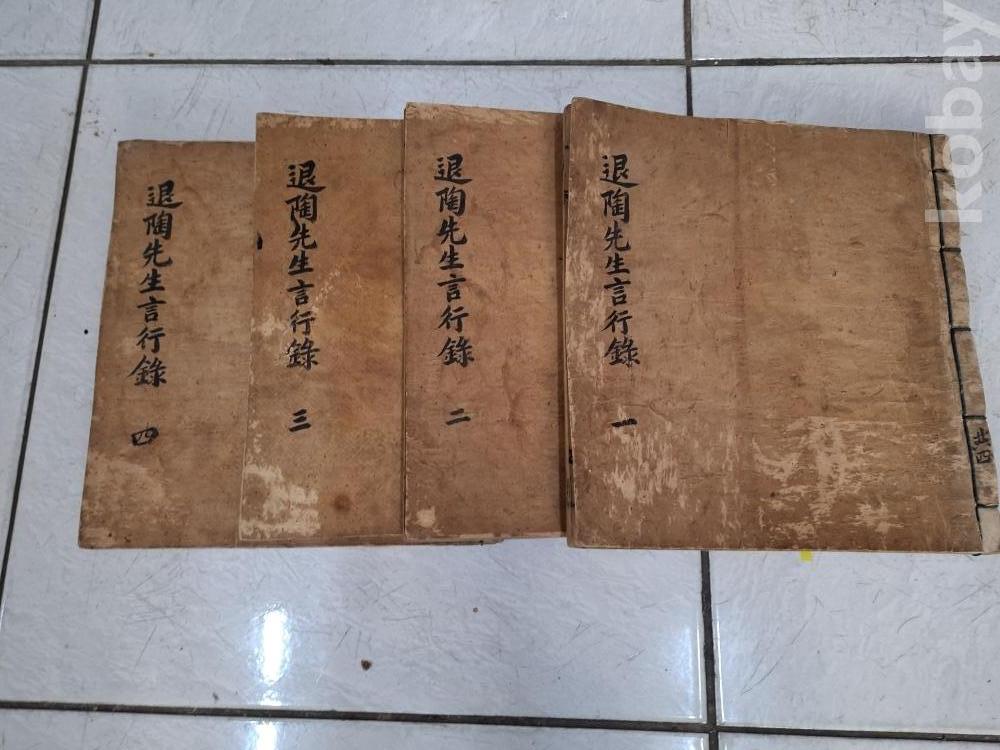 退陶先生言行錄 一
共四
退陶先生言行錄 二
退陶先生言行錄 三
退陶先生言行錄 四
kobay